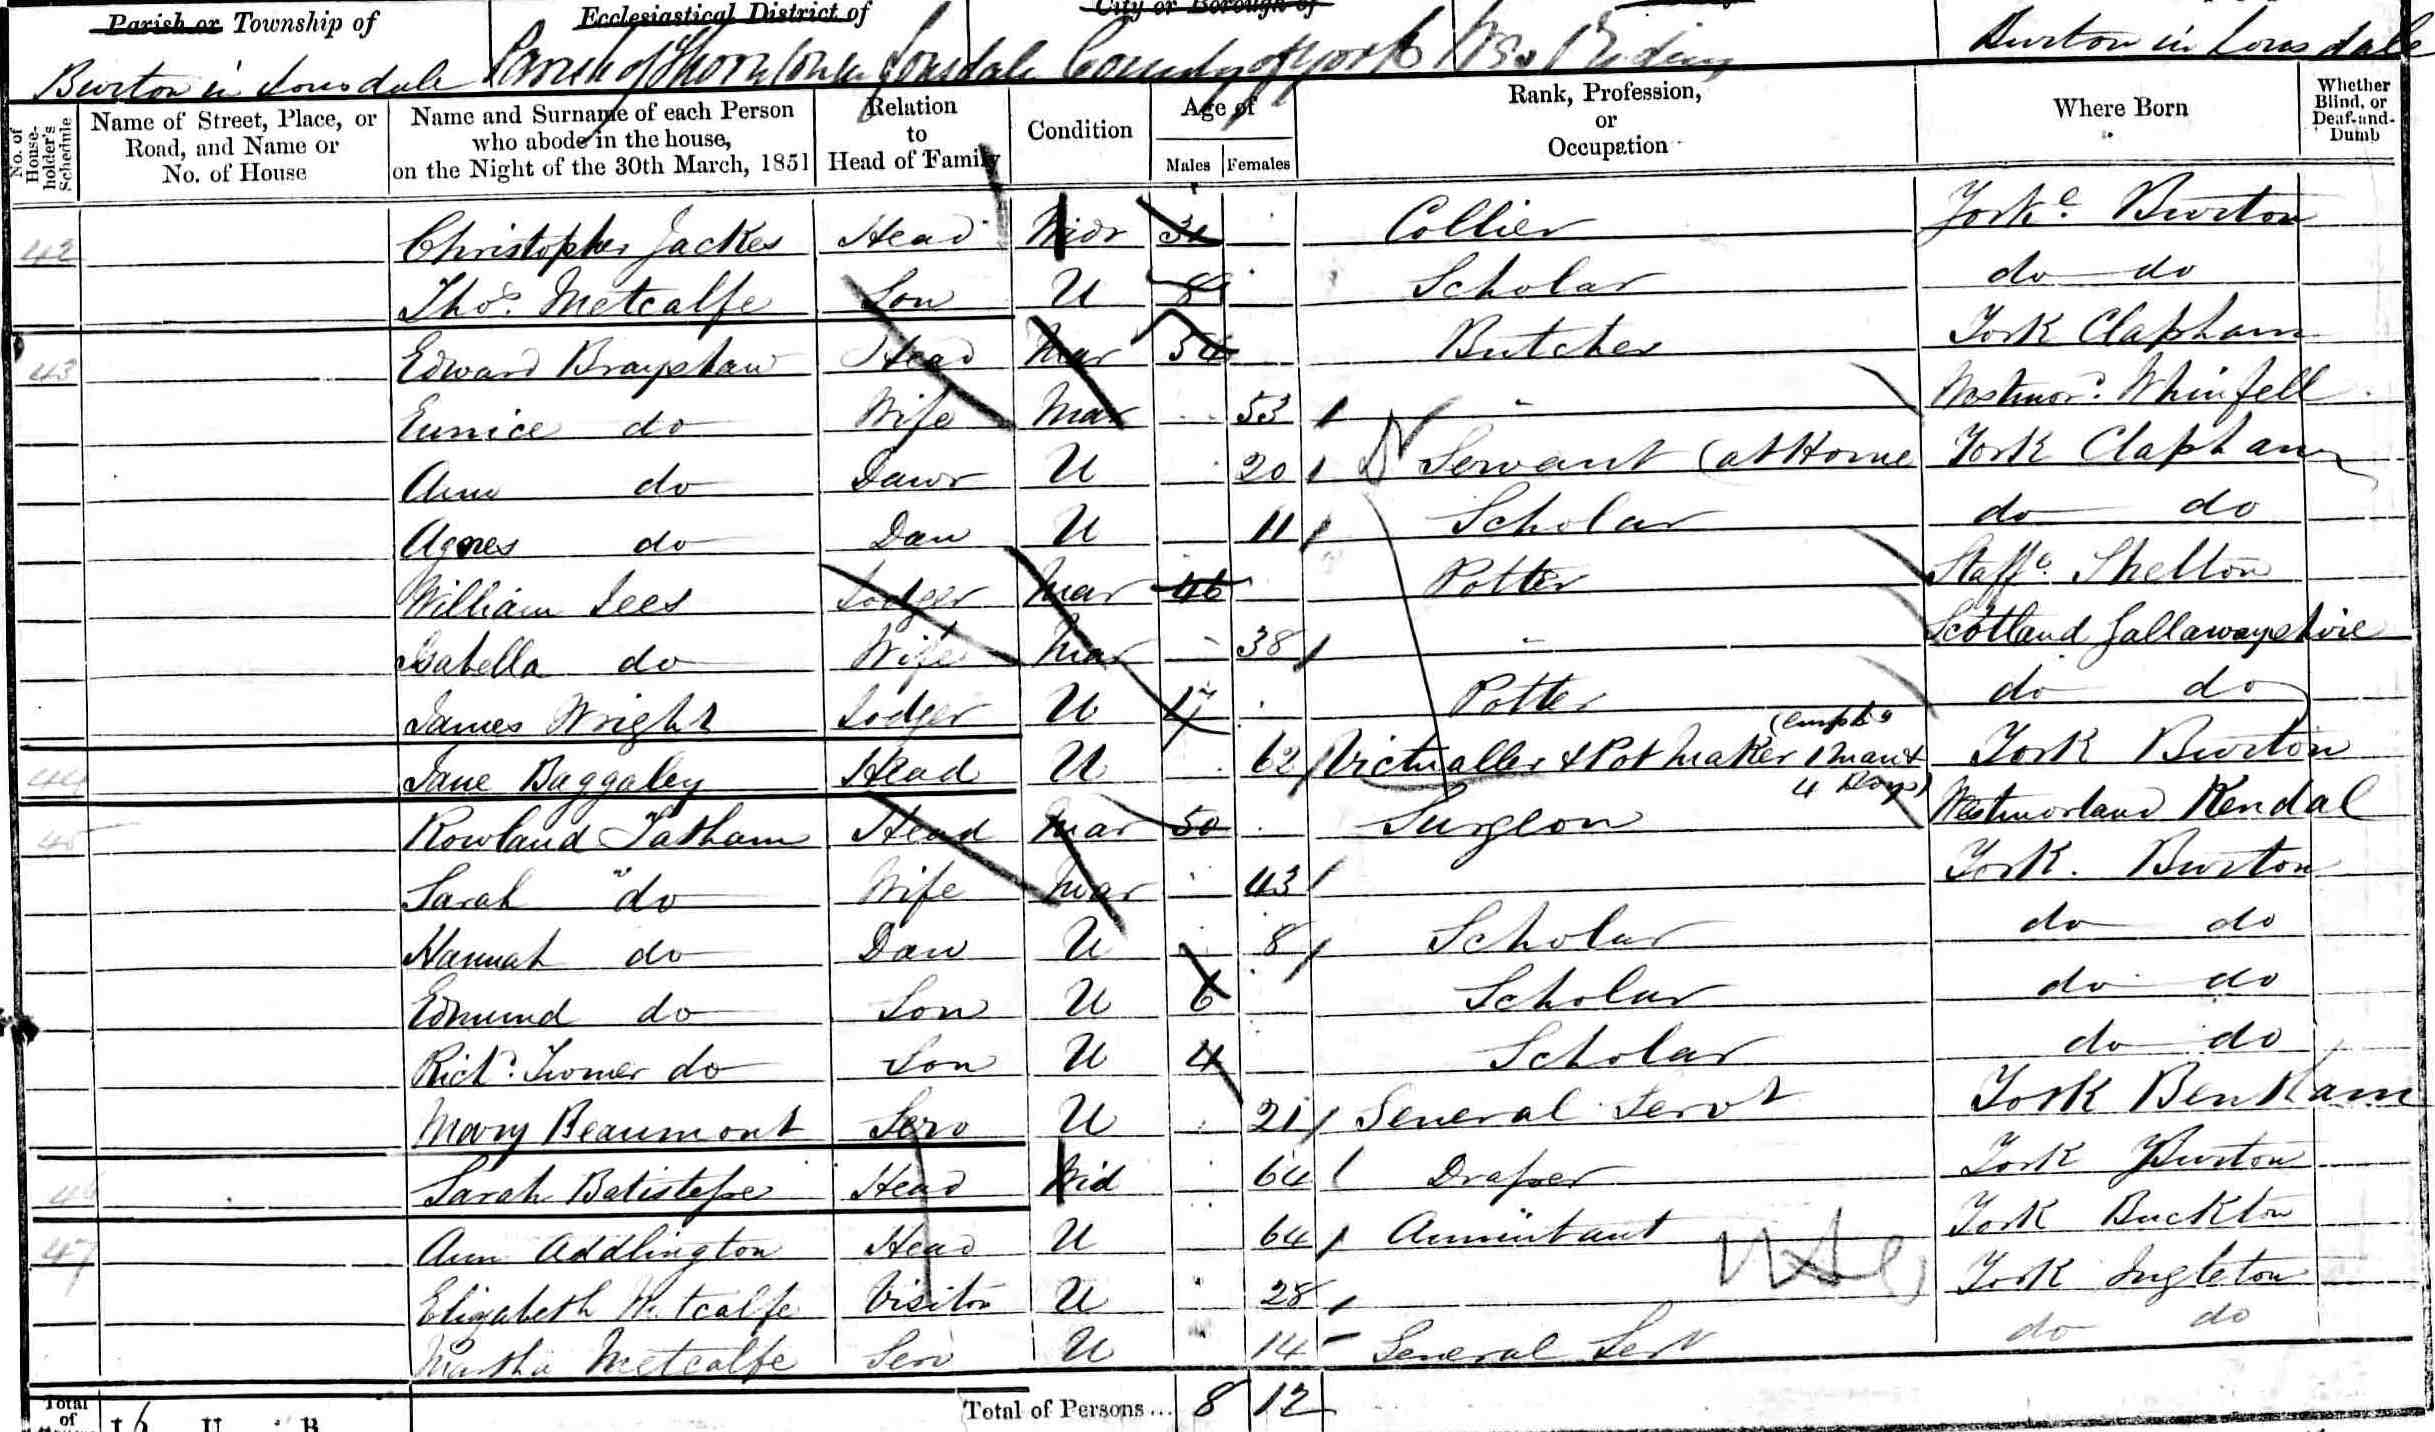 Parish or Township of Ecclesiastical District of City or Borough of
Burton in Lonsdale Parish of Thornton in Lonsdale County of York West Riding Burton in Lonsdale
No. of House-holder's Schedule Name of Street, Place, or Road, and Name or No. of House Name and Surname of each Person who abode in the house, on the Night of the 30th March, 1851 Relation to Head of Family Condition Age of Males Females Rank, Profession, or Occupation Where Born Whether Blind, or Deaf-and-Dumb
42 Christopher Jackes Head Widr Collier Yorke. Burton
Thos. Metcalfe Son U 8 Scholar do do
43 Edward Brayshaw Head Mar 54 Butcher York Clapham
Eunice do Wife Mar 53 Westmord. Whinfell
Ann do Dawr U 20 Servant (at Home York Clapham
Agnes do Daw U 11 Scholar do do
William Lees Lodger Mar 46 Potter Staffe. Shelton
Isabella do Wife Mar 38 Scotland Gallawayshire
James Wright Lodger U 17 Potter do do
44 Jane Baggaley Head U 62 Victualler & Pot Maker (Emplg 1 man & 4 Boys) York Burton
45 Rowland Tatham Head Mar 50 Surgeon Westmorland Kendal
Sarah do Wife Mar 43 York. Burton
Hannah do Daw U 8 Scholar do do
Edmund do Son U 6 Scholar do do
Richd. Turner do Son U 4 Scholar do do
Mary Beaumont Serv U 21 General Servt York Bentham
46 Sarah Head Wid 64 Draper York Burton
47 Ann Addlington Head U 64 Annuitant York Buckton
Elizabeth Metcalfe Visitor U 28 York Ingleton
Martha Metcalfe Serv U 14 General Servt do do
Total of Total of Persons... 8 12
I 6 U B